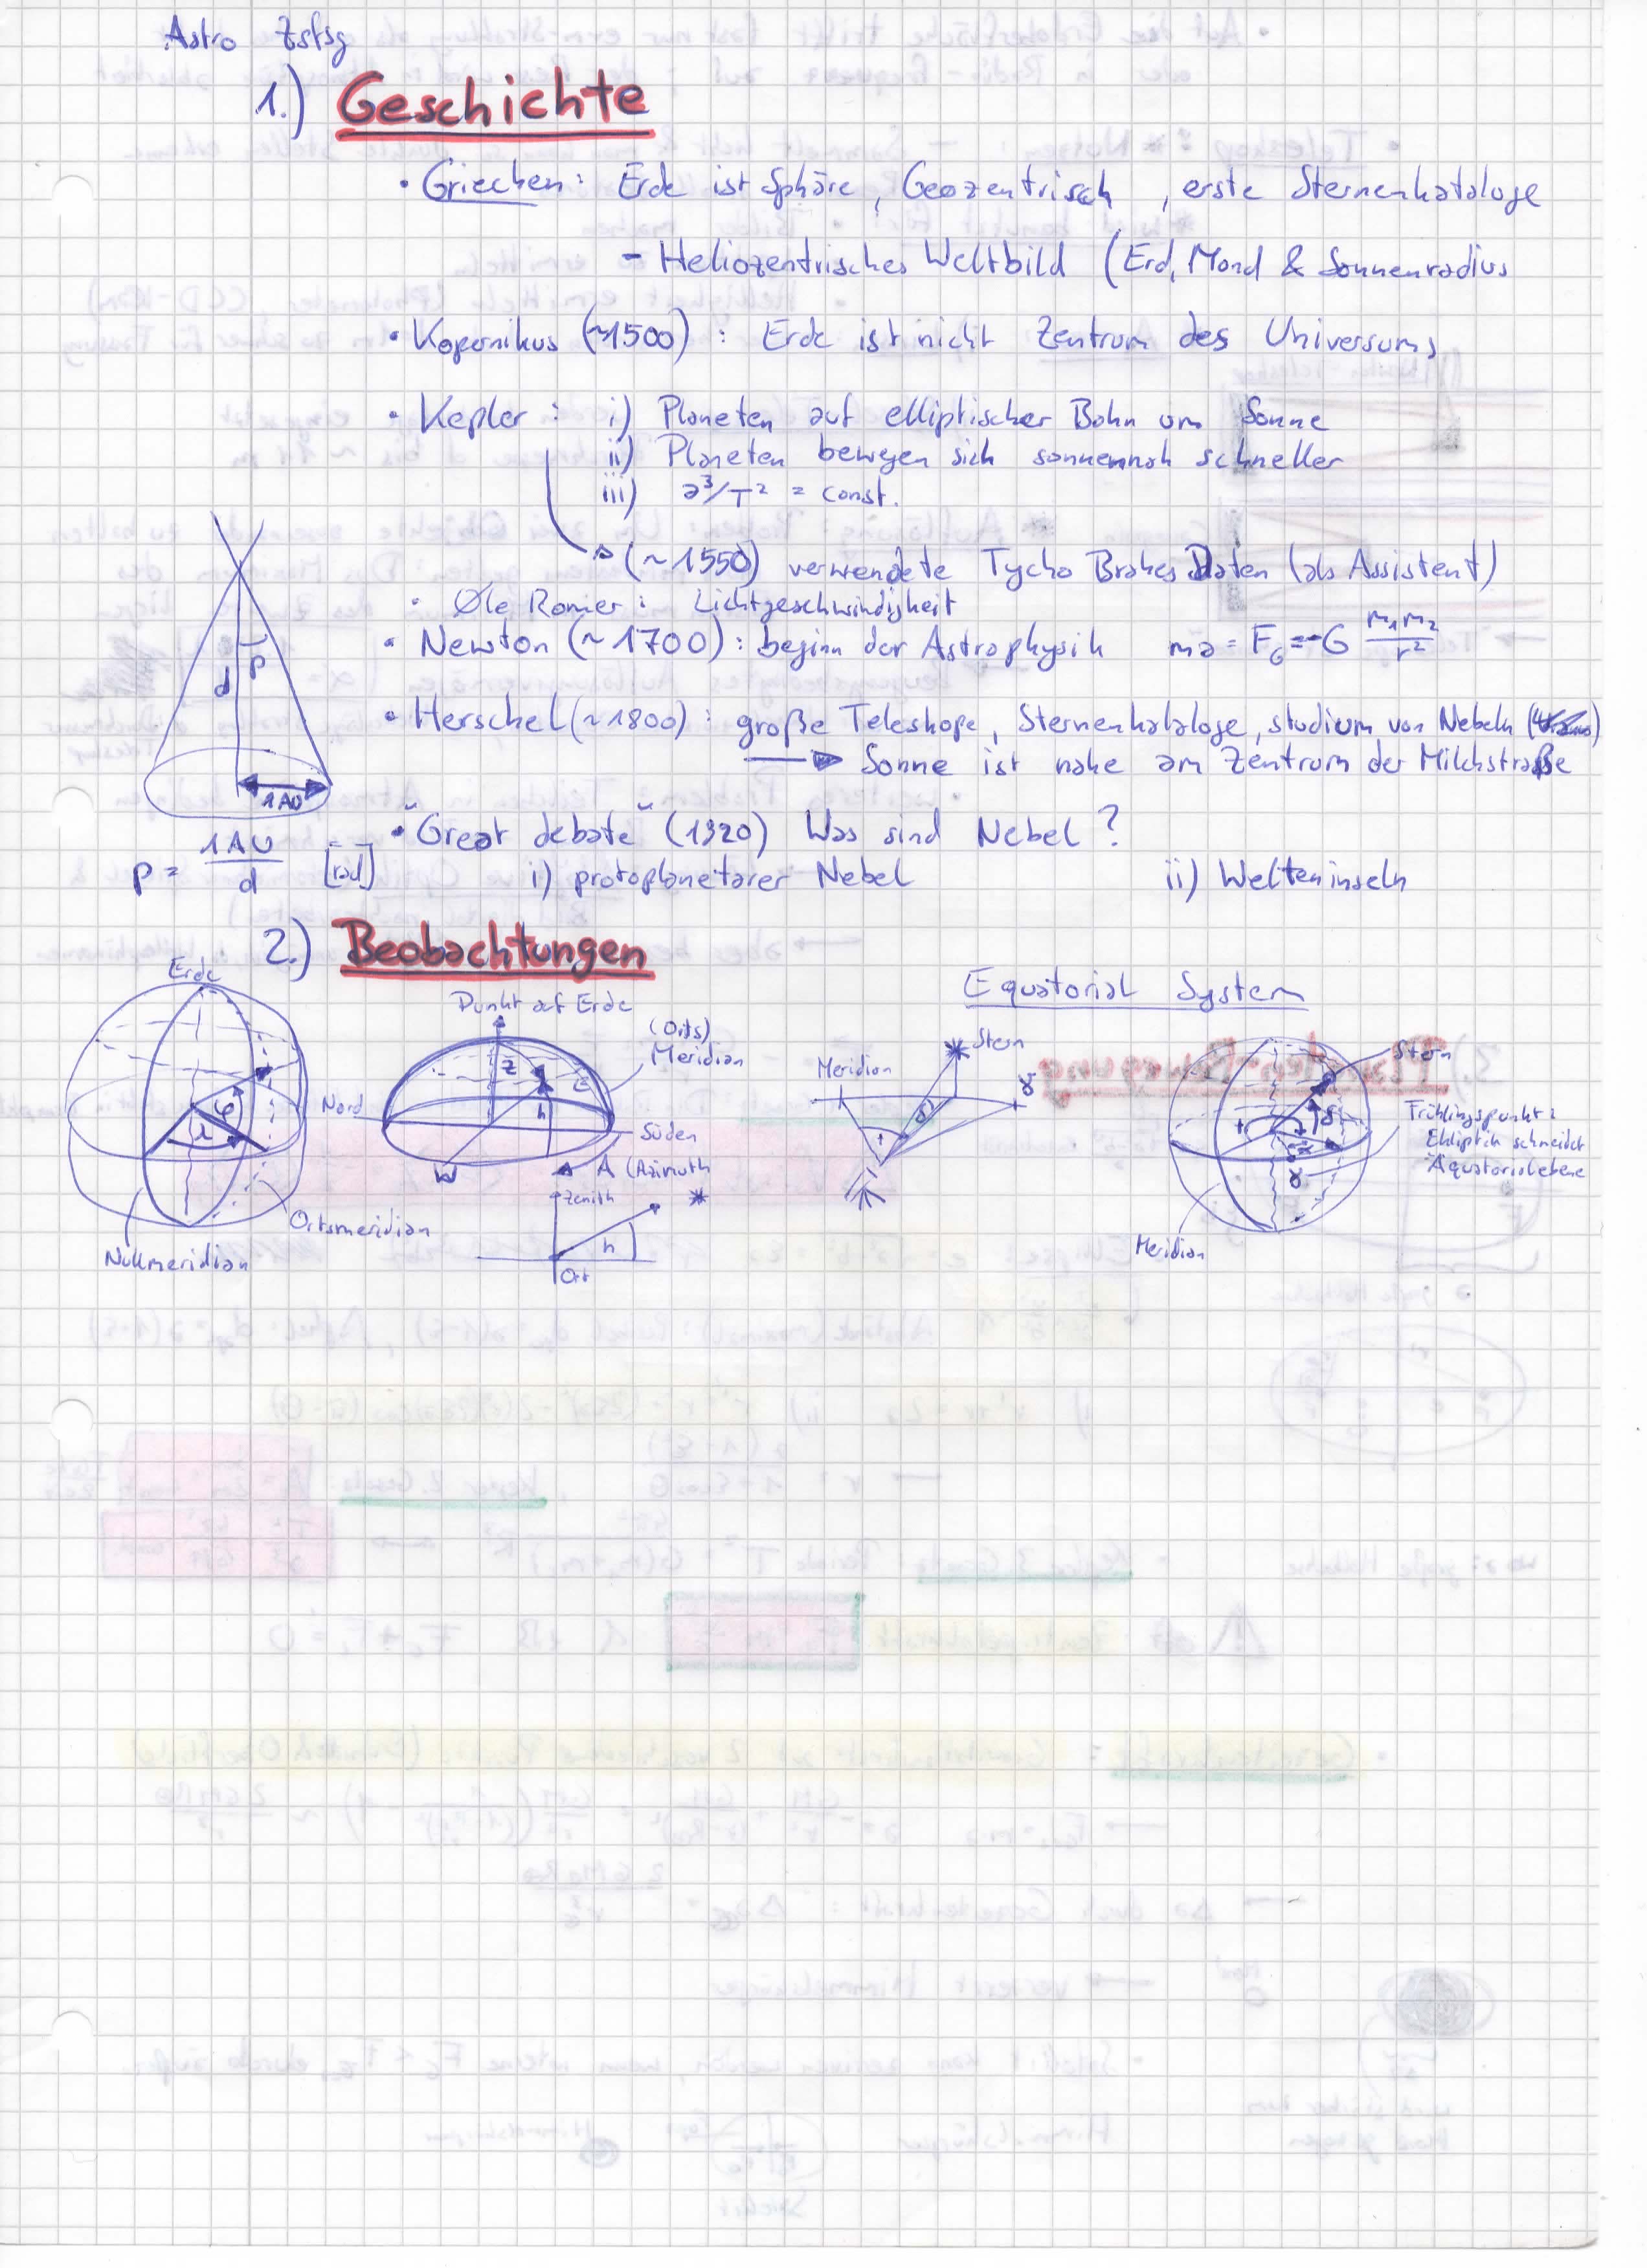 Astro Zsfsg
1.) Geschichte
• Griechen: Erde ist Sphäre, Geozentrisch, erste Sternenkataloge
- Heliozentrisches Weltbild (Erd, Mond & Sonnenradius
• Kopernikus (~1500): Erde ist nicht Zentrum des Universums
• Kepler: i) Planeten auf elliptischer Bahn um Sonne
ii) Planeten bewegen sich sonnennah schneller
iii) a³/T² = const.
(~1550) verwendete Tycho Brahes Daten (als Assistent)
• Øle Romer: Lichtgeschwindigkeit
• Newton (~1700): beginn der Astrophysik ma = F_G = -G m₁m₂/r²
• Herschel (~1800): große Teleskope, Sternenkataloge, studium von Nebeln
→ Sonne ist nahe am Zentrum der Milchstraße
d p
1AU
p = 1AU/d [rad]
• "Great debate" (1920) Was sind Nebel?
i) protoplanetarer Nebel ii) Welteninseln
2.) Beobachtungen
Erde
φ
λ
Nullmeridian
Ortsmeridian
Punkt auf Erde
(Orts)
Meridian
z
h
E
Nord
Süden
W
A (Azimuth
Zenith
h
Ort
Equatorial System
Meridian
Stern
t
δ
γ
Stern
t
δ
α
γ
Frühlingspunkt:
Ekliptik schneidet
Äquatorialebene
Meridian